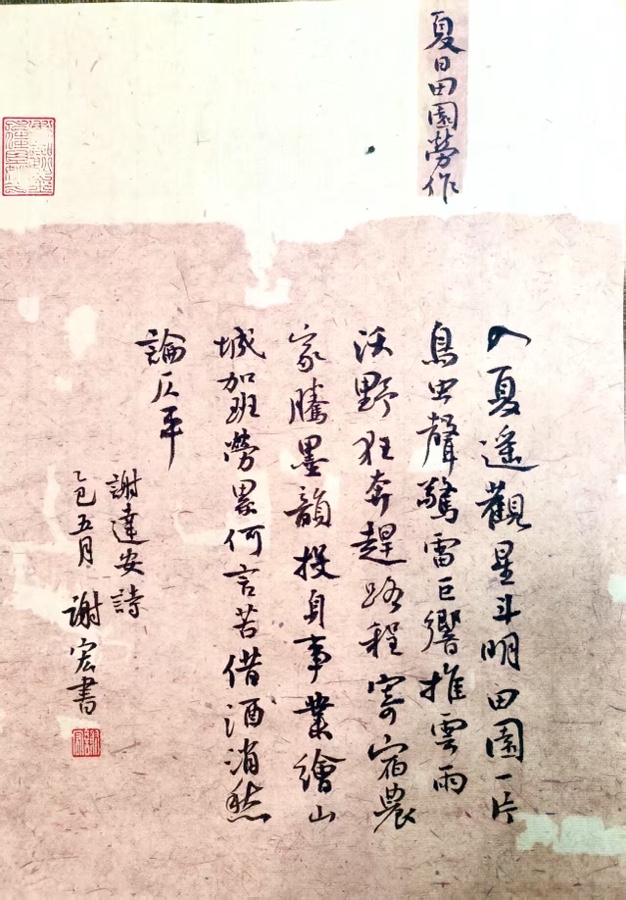 夏日田園勞作
入夏遥觀星斗明田園一片
鳥虫聲驚雷巨響推雲雨
沃野狂奔趕路程寄宿農
家騰墨韻投身事業繪山
城加班勞累何言苦借酒消愁
論仄平
謝達安詩
乙巳五月 謝宏書